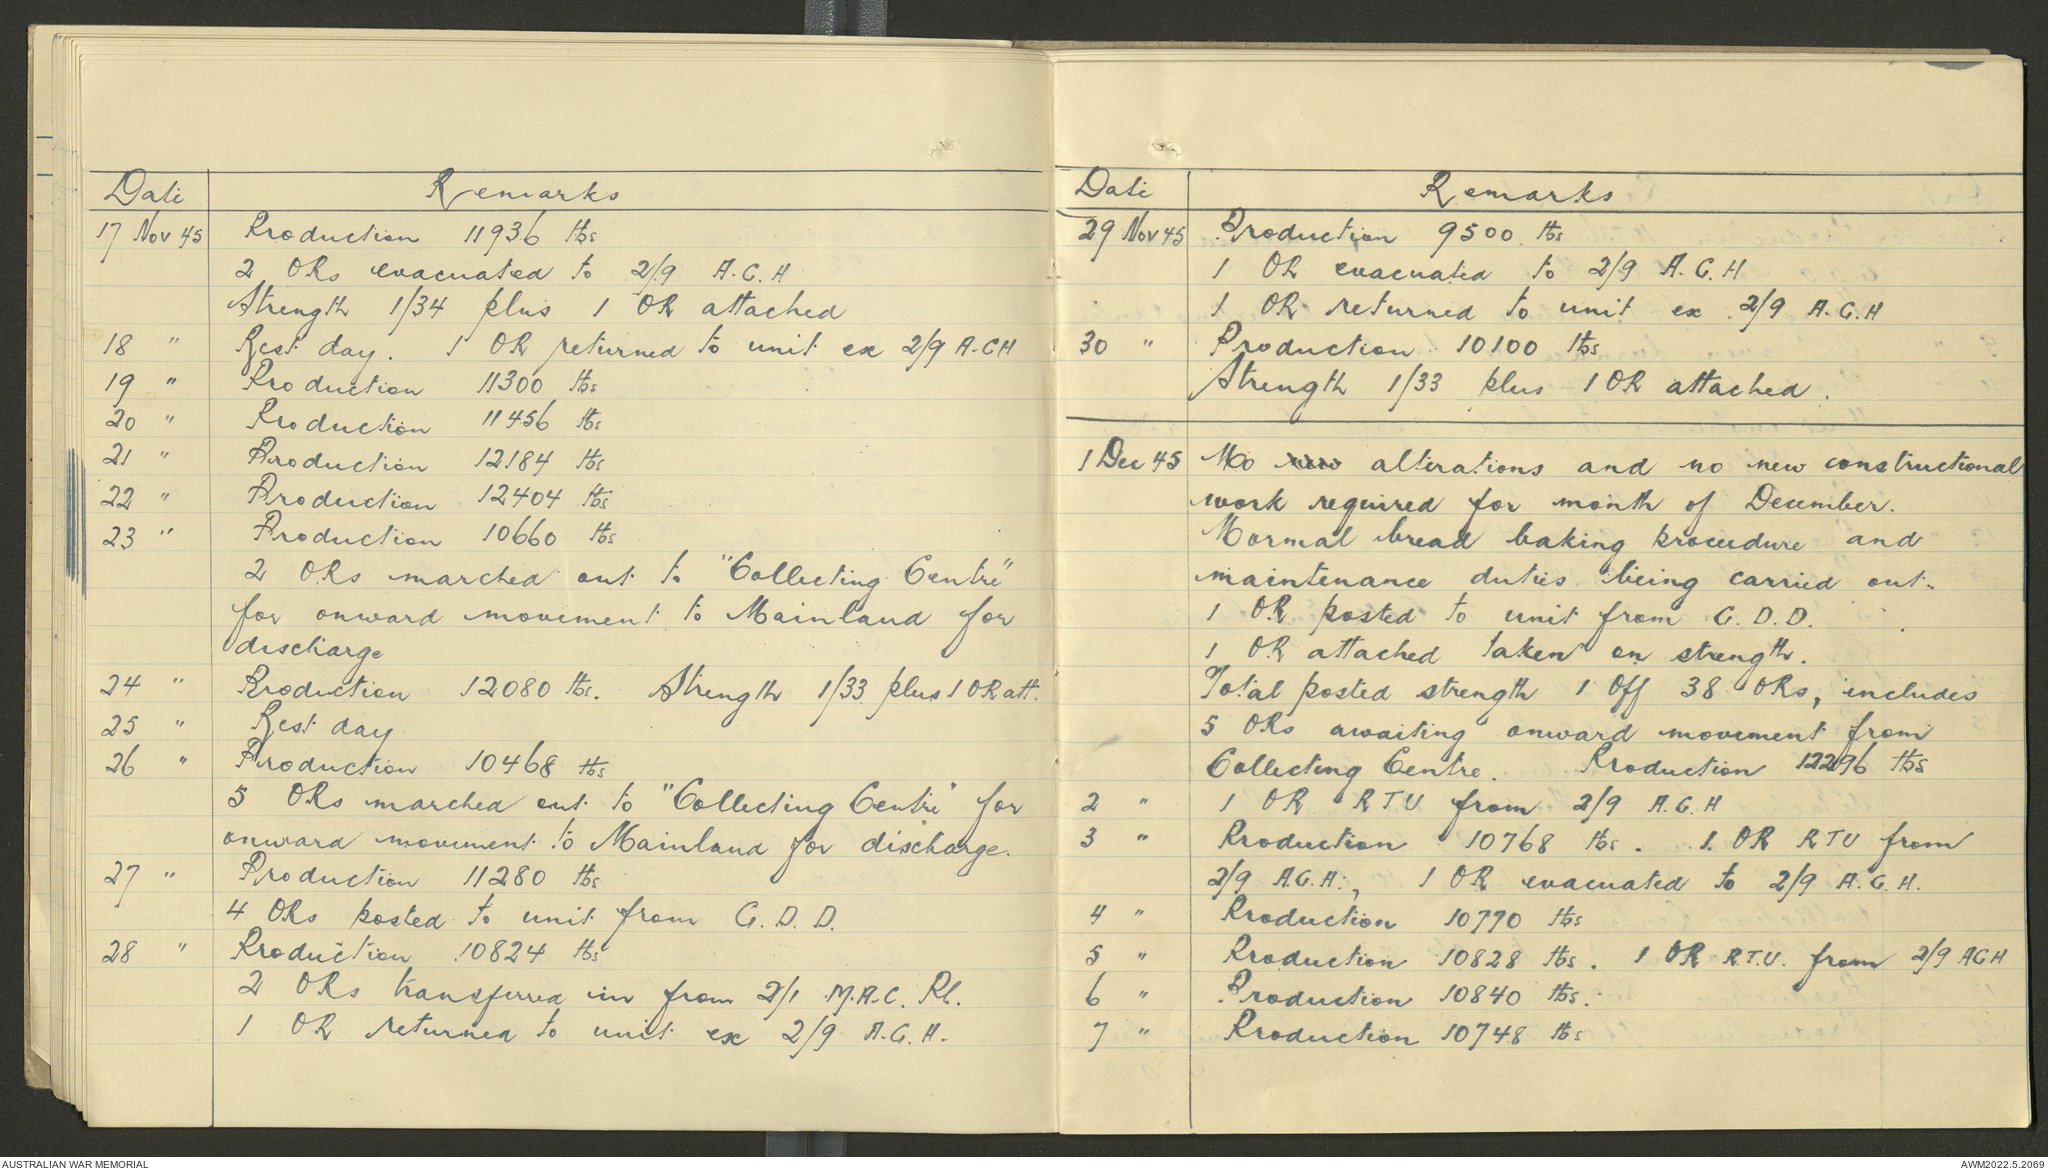 Date Remarks
17 Nov 45 Production 11936 lbs
2 ORs evacuated to 2/9 A.G.H
Strength 1/34 plus 1 OR attached
18 " Rest day. 1 OR returned to unit ex 2/9 A.GH
19 " Production 11300 lbs
20 " Production 11456 lbs
21 " Production 12184 lbs
22 " Production 12404 lbs
23 " Production 10660 lbs
2 ORs marched out to "Collecting Centre"
for onward movement to Mainland for
discharge
24 " Production 12080 lbs. Strength 1/33 plus 1 OR att.
25 " Rest day
26 " Production 10468 lbs
5 ORs marched out to "Collecting Centre" for
onward movement to Mainland for discharge.
27 " Production 11280 lbs
4 ORs posted to unit from G.D.D.
28 " Production 10824 lbs
2 ORs transferred in from 2/1 M.A.C. Pl.
1 OR returned to unit ex 2/9 A.G.H.
Date Remarks
29 Nov 45 Production 9500 lbs
1 OR evacuated to 2/9 A.G.H
1 OR returned to unit ex 2/9 A.G.H
30 " Production 10100 lbs
Strength 1/33 plus 1 OR attached.
1 Dec 45 No new alterations and no new constructional
work required for month of December.
Normal bread baking procedure and
maintenance duties being carried out.
1 OR posted to unit from G.D.D.
1 OR attached taken on strength.
Total posted strength 1 Off 38 ORs, includes
5 ORs awaiting onward movement from
Collecting Centre. Production 12296 lbs
2 " 1 OR RTU from 2/9 A.G.H
3 " Production 10768 lbs. 1 OR RTU from
2/9 A.G.H., 1 OR evacuated to 2/9 A.G.H.
4 " Production 10770 lbs
5 " Production 10828 lbs. 1 OR R.T.U. from 2/9 AGH
6 " Production 10840 lbs.
7 " Production 10748 lbs
AUSTRALIAN WAR MEMORIAL
AWM2022.5.2069